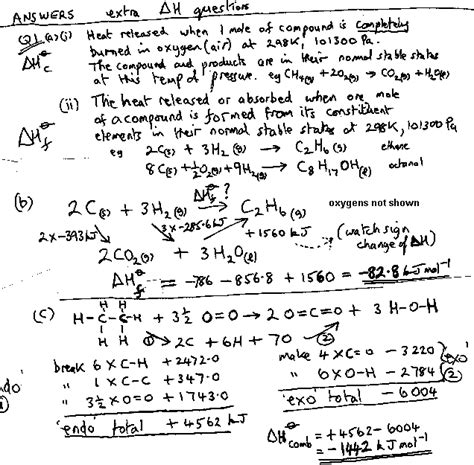 ANSWERS extra ΔH questions
Q1.(a)(i) Heat released when 1 mole of compound is completely
burned in oxygen (air) at 298K, 101300 Pa.
ΔH⊖c The compound and products are in their normal stable states
at this temp & pressure. eg CH4(g) + 2O2(g) → CO2(g) + H2O(l)
(ii) The heat released or absorbed when one mole
of a compound is formed from its constituent
ΔH⊖f elements in their normal stable states at 298K, 101300 Pa
eg 2C(s) + 3H2(g) → C2H6(g) ethane
8C(s) + ½O2(g) + 9H2(g) → C8H17OH(l) octanol
(b) ΔH⊖f ?
2C(s) + 3H2(g) → C2H6(g) oxygens not shown
2x-393kJ 3x-285.6kJ +1560 kJ (watch sign
change of ΔH)
2CO2(g) + 3H2O(l)
ΔH⊖f = -786 - 856.8 + 1560 = -82.8 kJ mol⁻¹
(c) H H
H-C-C-H + 3½ O=O → 2 O=C=O + 3 H-O-H
H H ① 2C + 6H + 7O ②
break 6 X C-H + 2472.0
" 1 X C-C + 347.0
" 3½ X O=O + 1743.0
'endo' ①
'endo' total + 4562 kJ
make 4 X C=O - 3220
" 6 X O-H - 2784
'exo' ②
'exo' total - 6004
ΔH⊖comb = +4562 - 6004
= -1442 kJ mol⁻¹